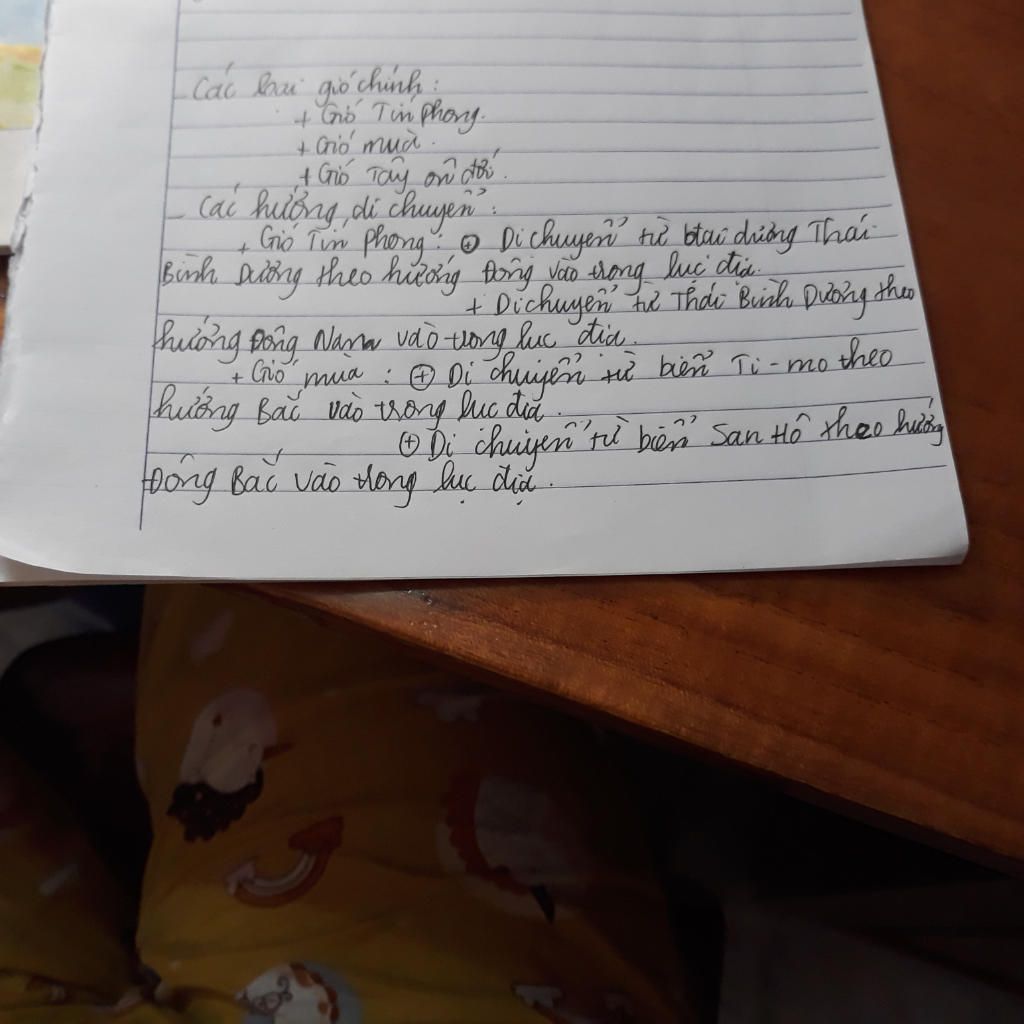 - Các loại gió chính:
+ Gió Tín phong.
+ Gió mùa.
+ Gió Tây ôn đới.
- Các hướng di chuyển:
+ Gió Tín phong: + Di chuyển từ dương Thái
Bình Dương theo hướng Đông vào trong lục địa.
+ Di chuyển từ Thái Bình Dương theo
hướng Đông Nam vào trong lục địa.
+ Gió mùa: + Di chuyển từ biển Ti-mo theo
hướng Bắc vào trong lục địa.
+ Di chuyển từ biển San Hô theo hướng
Đông Bắc vào trong lục địa.